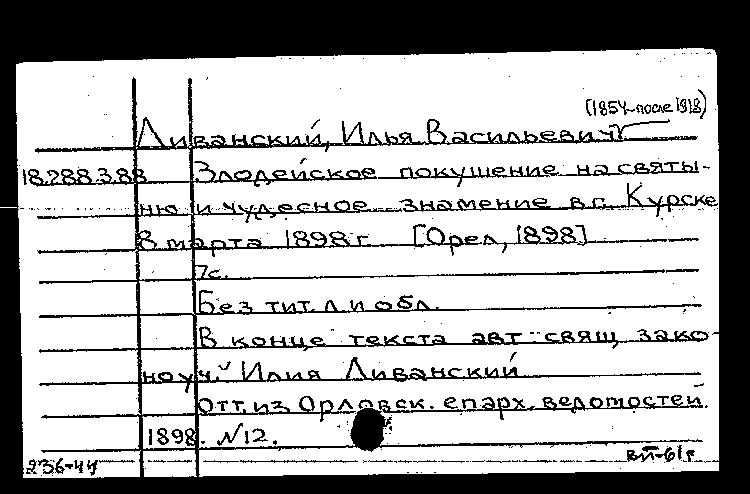 (1854-после 1918)
Ливанский, Илья Васильевич
18.288.3.88 Злодейское покушение на святы-
ню и чудесное знамение в г. Курске
8 марта 1898 г. [Орел, 1898]
7с.
Без тит. л. и обл.
В конце текста авт.: свящ. зако-
ноуч. Илия Ливанский
Отт. из Орловск. епарх. ведомостей
1898. №12.
236-44